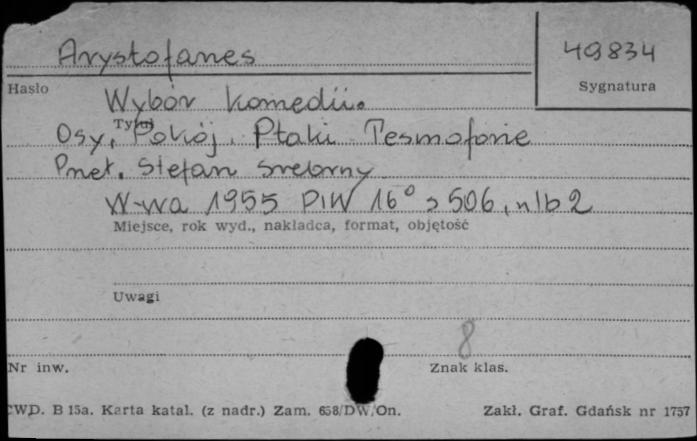 Arystofanes
49834
Hasło
Sygnatura
Wybór komedii.
Tytuł
Osy, Pokój, Ptaki Tesmoforie
Przeł. Stefan Srebrny
W-wa 1955 PIW 16° s 506, nlb 2
Miejsce, rok wyd., nakładca, format, objętość
Uwagi
8
Nr inw.
Znak klas.
CWD. B 15a. Karta katal. (z nadr.) Zam. 658/DW/On.
Zakł. Graf. Gdańsk nr 1757